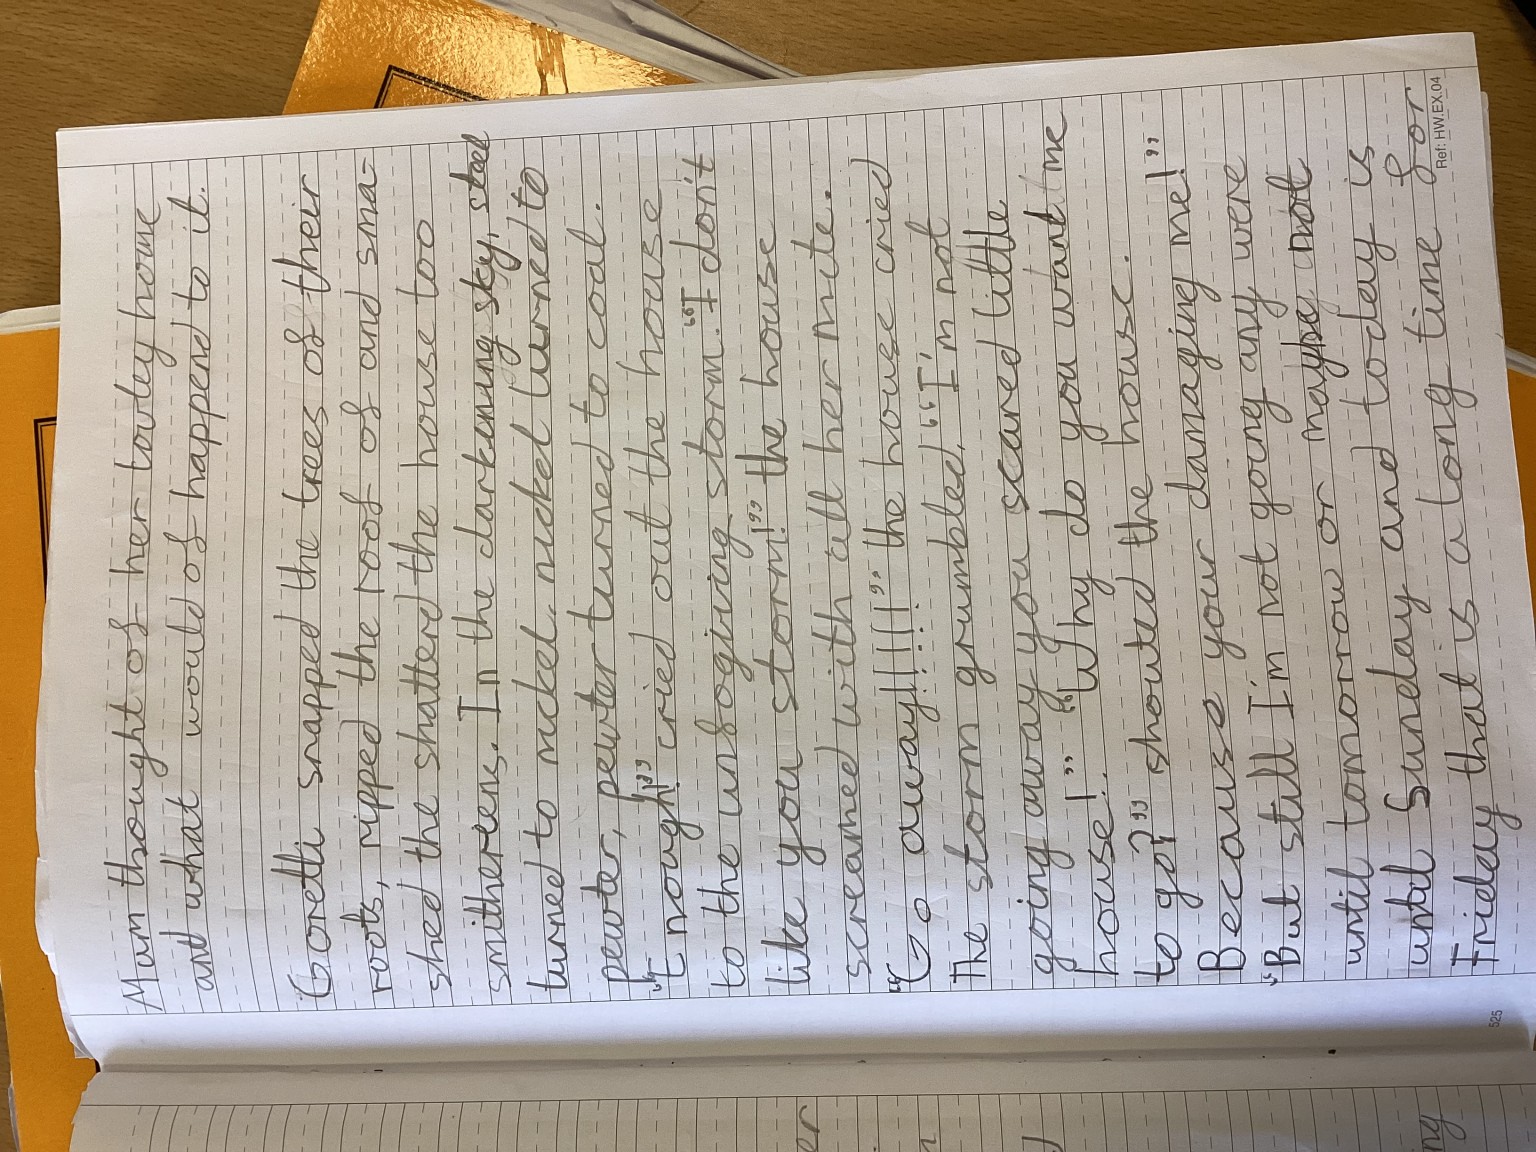 Mum thought of her lovley home
and what would of happend to it.
Goretti snapped the trees of their
roots, ripped the roof of and sma-
shed the shattered the house too
smithereens. In the darkening sky, steel
turned to nickel, nickel turned to
pewter, pewter turned to coal.
"Enough!" cried out the house
to the unfogiving storm. "I don't
like you storm!" the house
screamed with all her mite.
"Go away!!!!!!" the house cried
The storm grumbled, "I'm not
going away you scared little
house!" "Why do you want me
to go?" shouted the house.
Because your damaging me!"
"But still I'm not going any were
until tomorrow or maybe not
until Sunday and today is
Friday that is a long time for
Ref: HW.EX.04
525
er
n
ng